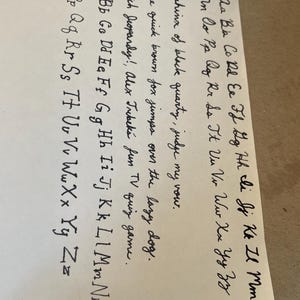 a Bb Cc Dd Ee Ff Gg Hh Ii Jj Kk Ll Mm
n Oo Pp Qq Rr Ss Tt Uu Vv Ww Xx Yy Zz
phinx of black quartz, judge my vow.
e quick brown fox jumps over the lazy dog.
ch Jeopardy!, Alex Trebek's fun TV quiz game.
Bb Cc Dd Ee Ff Gg Hh Ii Jj Kk Ll Mm N
p Qq Rr Ss Tt Uu Vv Ww Xx Yy Zz